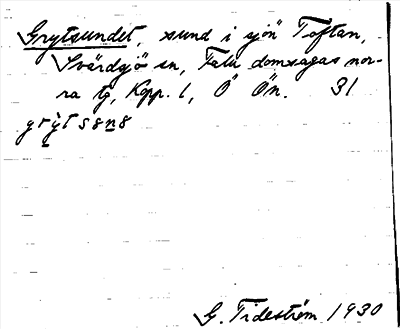 Grytsundet, sund i sjön Toftan,
Svärdsjö sn, Falu domsagas nor-
ra tg, Kopp. l, Ö Ön. 31
G. Tideström 1930